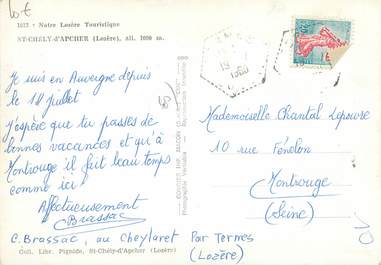 10€
1012 - Notre Lozère Touristique
ST-CHÉLY-d'APCHER (Lozère), alt. 1000 m.
Je suis en Auvergne depuis
le 14 juillet
J'espère que tu passes de
bonnes vacances et qu'à
Montrouge il fait beau temps
comme ici
Affectueusement
Brassac
C. Brassac, au Cheylaret Par Termes
(Lozère)
Coll. Libr. Pignide, St-Chély-d'Apcher (Lozère)
19
1960
Mademoiselle Chantal Lepoivre
10 rue Fénelon
Montrouge
(Seine)